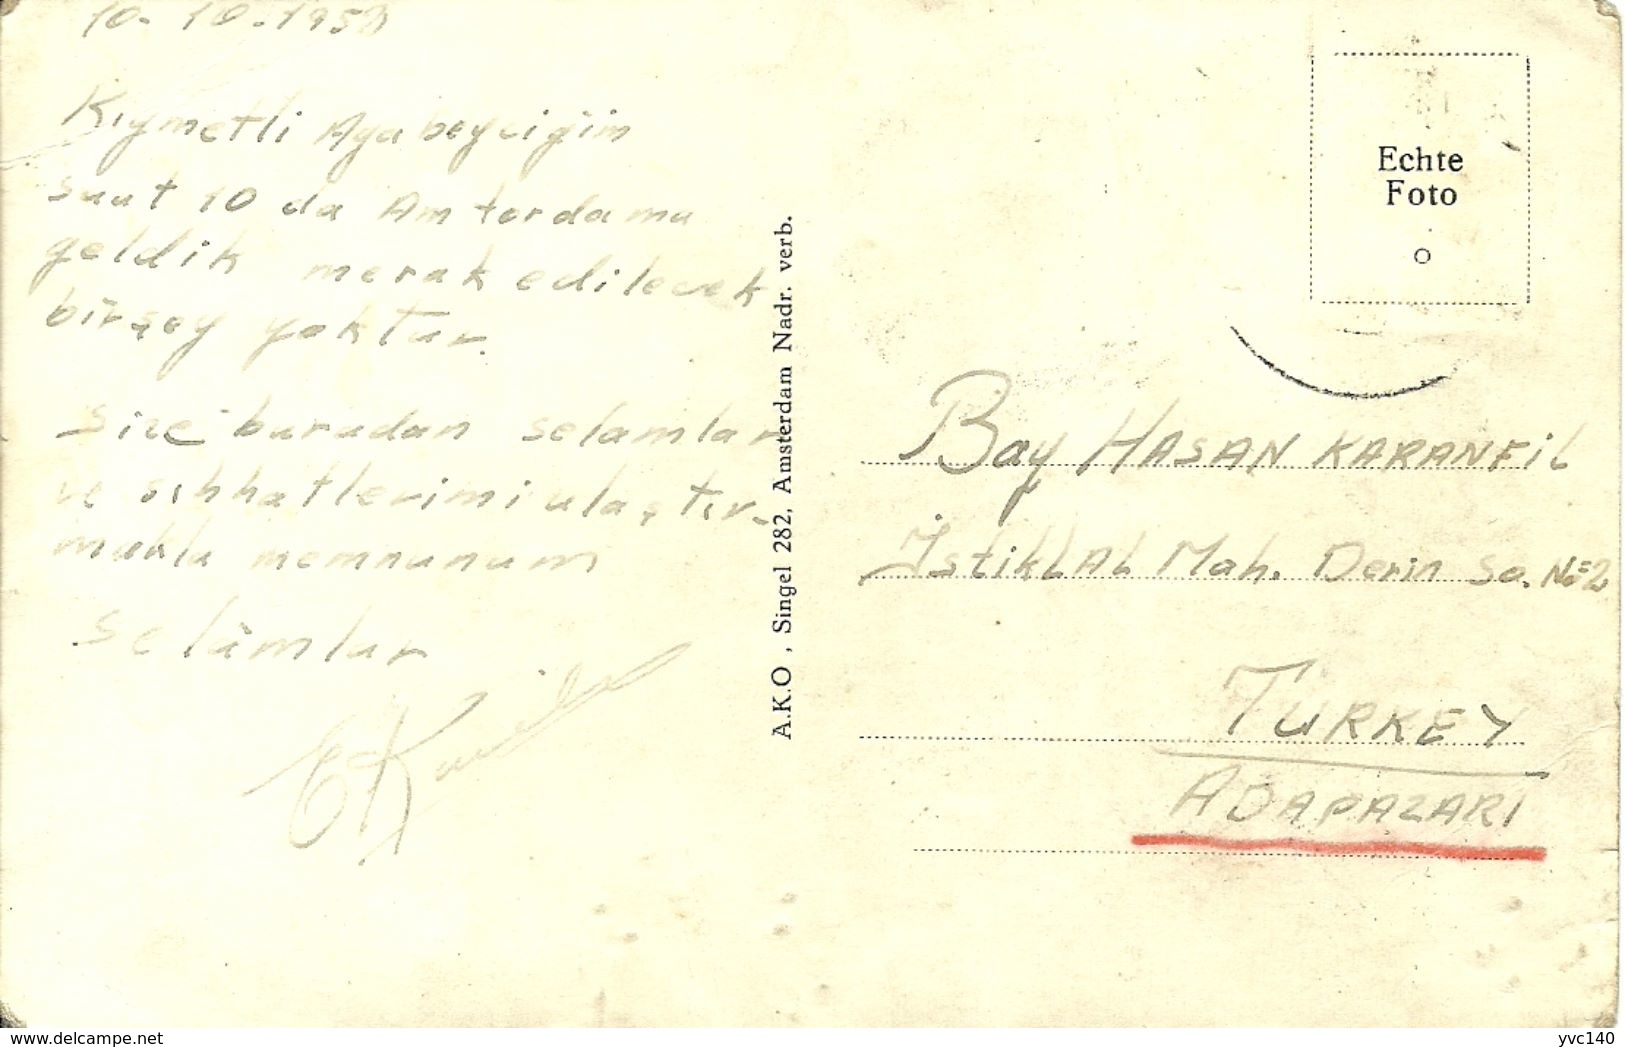 10-10-1953
Kıymetli Ağabeyciğim
saat 10 da Amsterdama
geldik merak edilecek
birşey yoktur.
Size buradan selamlar
ve sıhhatlerimi ulaştır-
makla memnunum
Selâmlar
A.K.O , Singel 282, Amsterdam Nadr. verb.
Echte
Foto
Bay HASAN KARANFİL
İstiklAL Mah. Derin So. No=2
TURKEY
ADAPAZARI
www.delcampe.net
yvc140